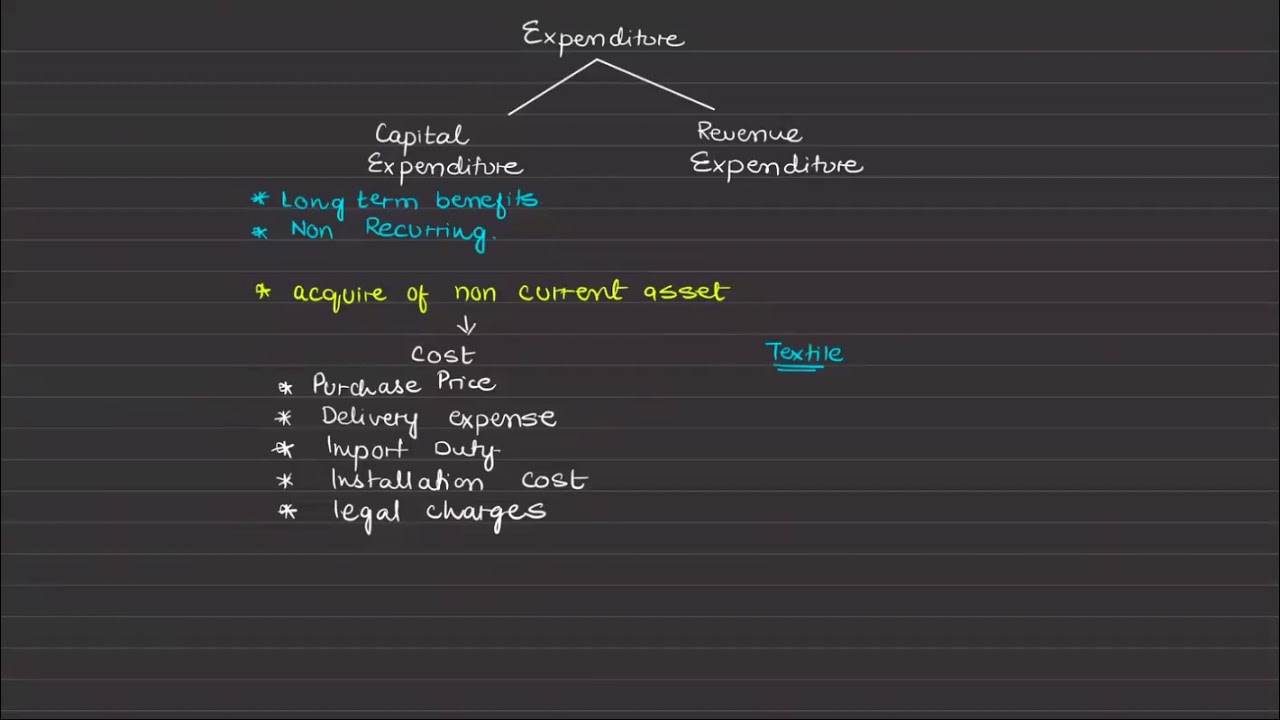 Expenditure
Capital Expenditure
Revenue Expenditure
* Long term benefits.
* Non Recurring.
* acquire of non current asset
↓
Cost
Textile
* Purchase Price
* Delivery expense
* Import Duty
* Installation cost
* legal charges